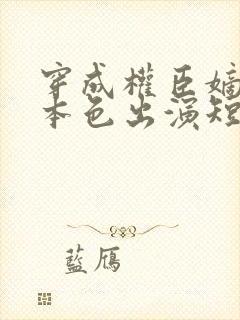 穿成權臣嫡
本色出演短
藍雁